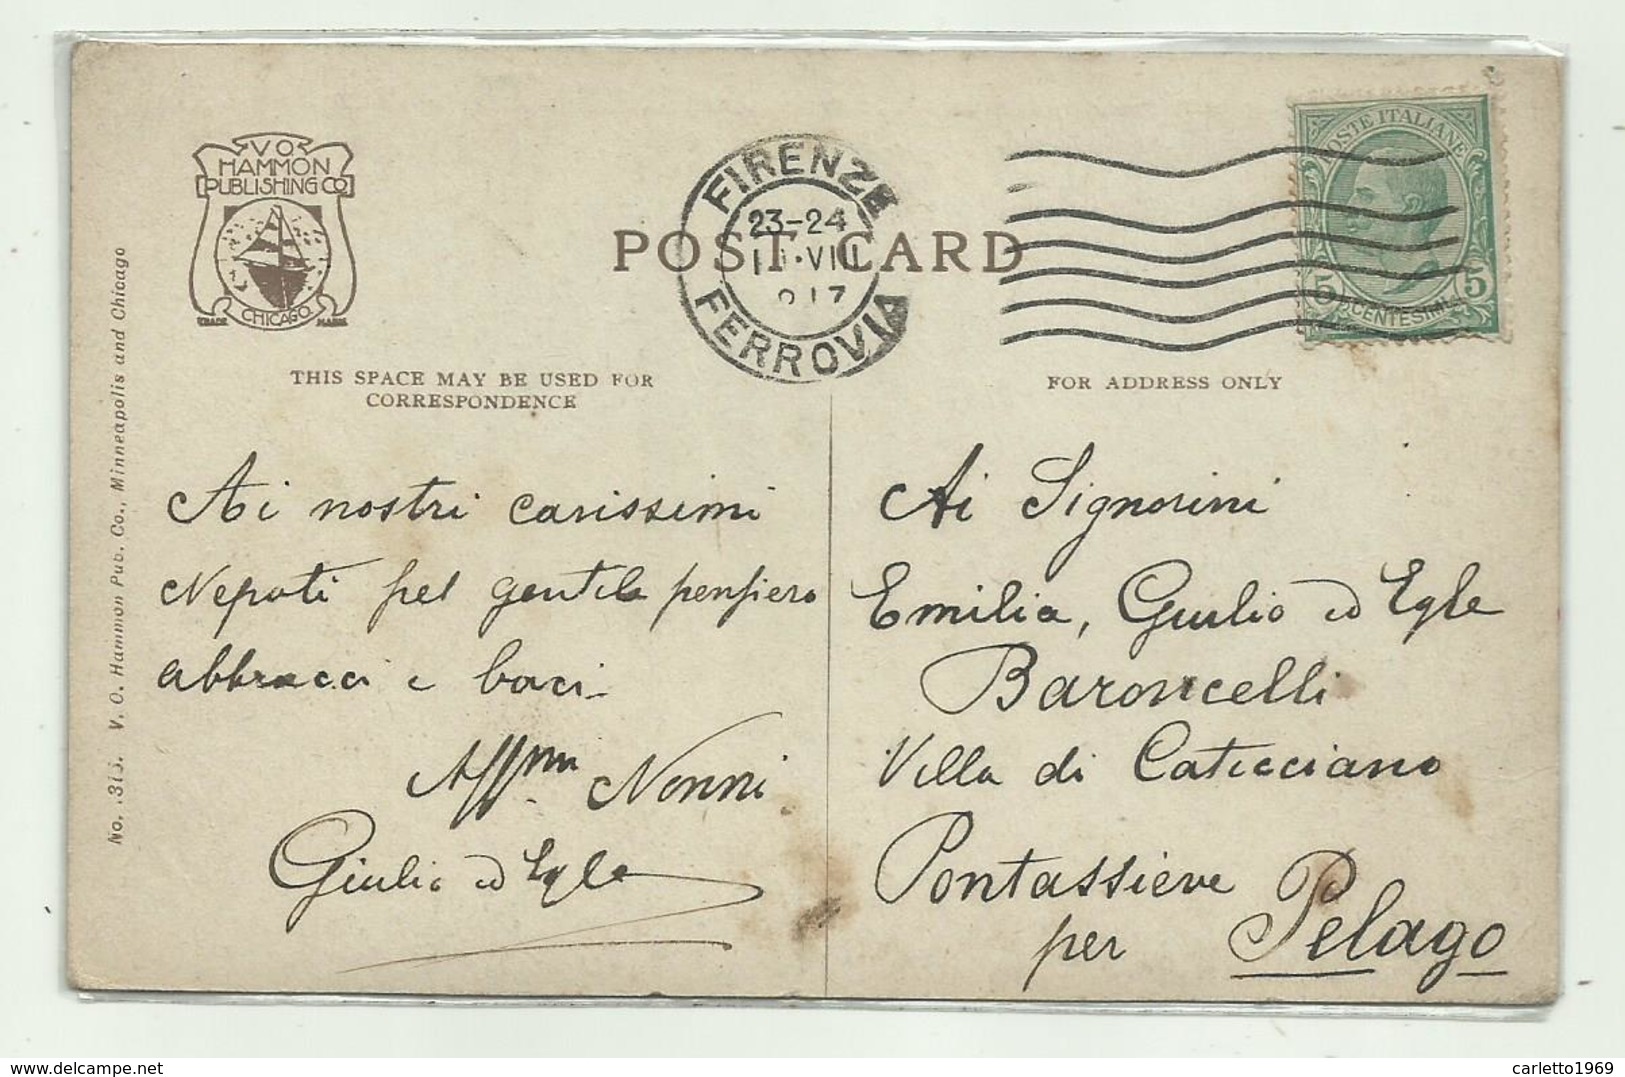 V O
HAMMON
PUBLISHING CO
CHICAGO
TRADE MARK
No. 313. V. O. Hammon Pub. Co., Minneapolis and Chicago
POST CARD
FIRENZE
23-24
VIII
917
FERROVIA
POSTE ITALIANE
5 CENTESIMI 5
THIS SPACE MAY BE USED FOR
CORRESPONDENCE
FOR ADDRESS ONLY
Ai nostri carissimi
Nepoti pel gentile pensiero
abbracci e baci-
Affmi Nonni
Giulio ed Egle
Ai Signorini
Emilia, Giulio ed Egle
Baroncelli
Villa di Caticciano
Pontassieve
per Pelago
delcampe.net
carletto1969